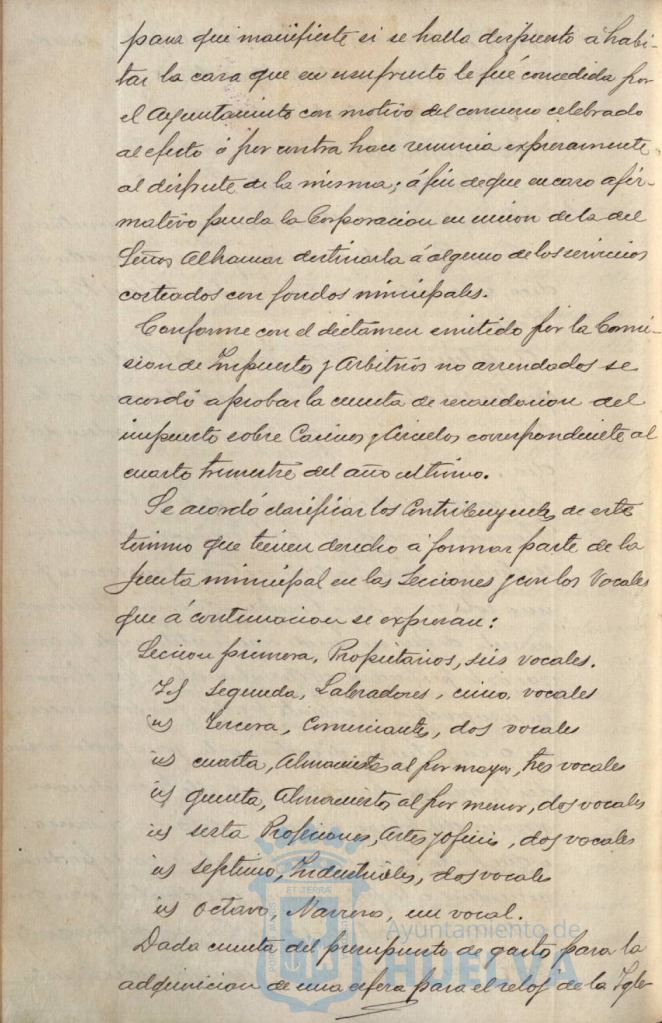 para que manifieste si se halla dispuesto á habi-
tar la casa que en usufructo le fué concedida por
el Ayuntamiento con motivo del concurso celebrado
al efecto ó por contra hace renuncia expresamente
al disfrute de la misma; á fin de que en caso afir-
mativo pueda la Corporacion en union de la del
Señor Alhamar destinarla á alguno de los servicios
costeados con fondos municipales.
Conforme con el dictámen emitido por la Comi-
sion de Impuestos y Arbitrios no arrendados se
acordó aprobar la cuenta de recaudacion del
impuesto sobre Casinos y Circulos correspondiente al
cuarto trimestre del año ultimo.
Se acordó clasificar los Contribuyentes de este
termino que tienen derecho á formar parte de la
Junta municipal en las Secciones y con los Vocales
que á continuacion se expresan:
Seccion primera, Propietarios, seis vocales.
Id segunda, Labradores, cinco vocales
id Tercera, Comerciantes, dos vocales
id cuarta, Almacenistas al por mayor, tres vocales
id quinta, Almacenistas al por menor, dos vocales
id sexta Profesiones, Artes y Oficios, dos vocales
id septimo, Industriales, dos vocales
id octavo, Marinos, un vocal.
Dada cuenta del presupuesto de gasto para la
adquisicion de una esfera para el reloj de la Igle
Ayuntamiento de
HUELVA